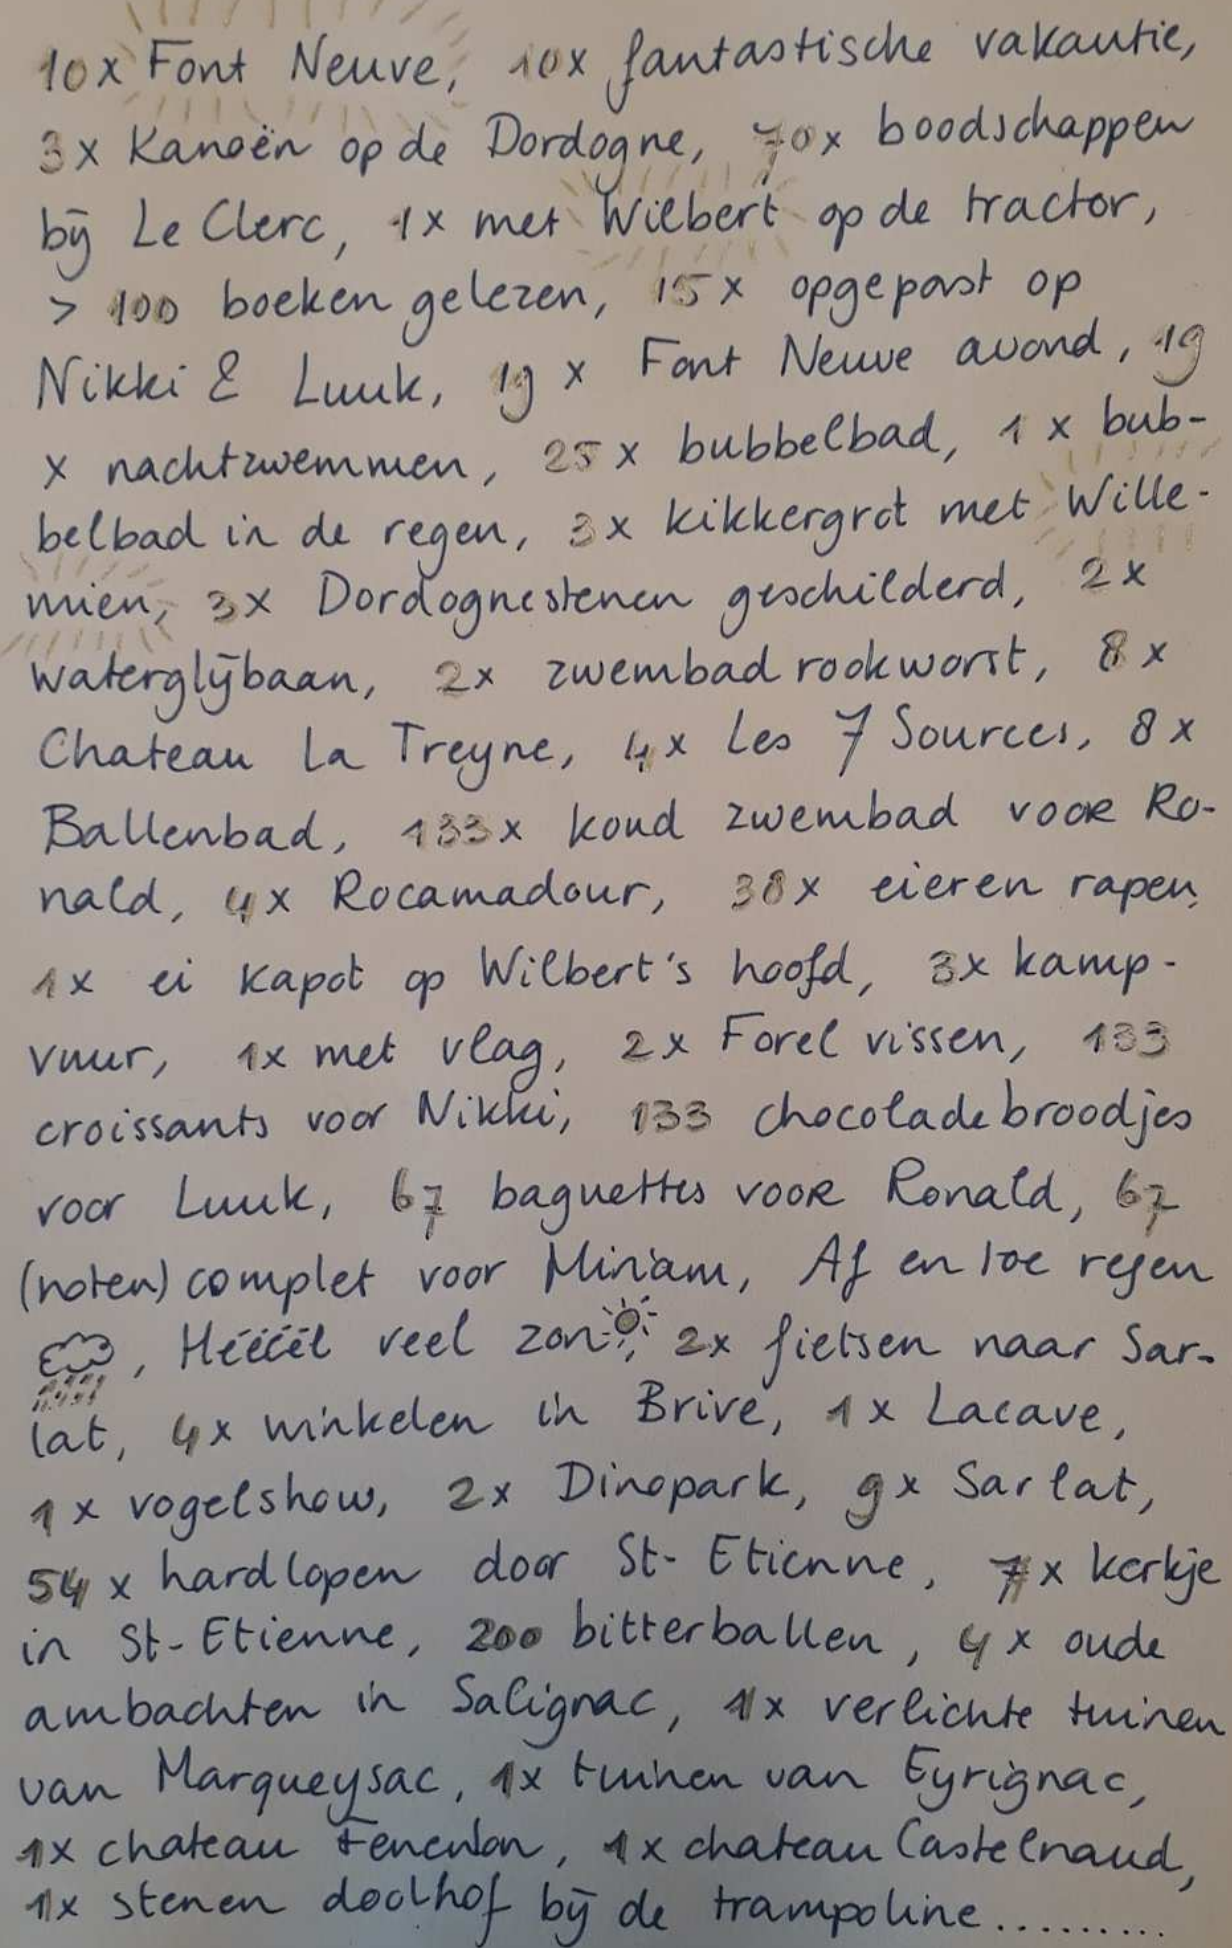 10x Font Neuve, 10x fantastische vakantie,
3x Kanoën op de Dordogne, 70x boodschappen
bij Le Clerc, 1x met Wilbert op de tractor,
> 100 boeken gelezen, 15x opgepast op
Nikki & Luuk, 19 x Font Neuve avond, 19
x nachtzwemmen, 25 x bubbelbad, 1 x bub-
belbad in de regen, 3x kikkergrot met Wille-
mien, 3x Dordognestenen geschilderd, 2x
waterglijbaan, 2x zwembad rookworst, 8 x
Chateau La Treyne, 4x Les 7 Sources, 8x
Ballenbad, 133x koud zwembad voor Ro-
nald, 4x Rocamadour, 38x eieren rapen,
1x ei kapot op Wilbert's hoofd, 3x kamp-
vuur, 1x met vlag, 2x Forel vissen, 133
croissants voor Nikki, 133 chocoladebroodjes
voor Luuk, 67 baguettes voor Ronald, 67
(noten) complet voor Miriam, Af en toe regen
, Hééééél veel zon, 2x fietsen naar Sar-
lat, 4x winkelen in Brive, 1x Lacave,
1x vogelshow, 2x Dinopark, 9x Sarlat,
54 x hardlopen door St-Etienne, 7x kerkje
in St-Etienne, 200 bitterballen, 4x oude
ambachten in Salignac, 1x verlichte tuinen
van Marqueysac, 1x tuinen van Eyrignac,
1x chateau Fenenlon, 1x chateau Castelnaud,
1x stenen doolhof bij de trampoline..........